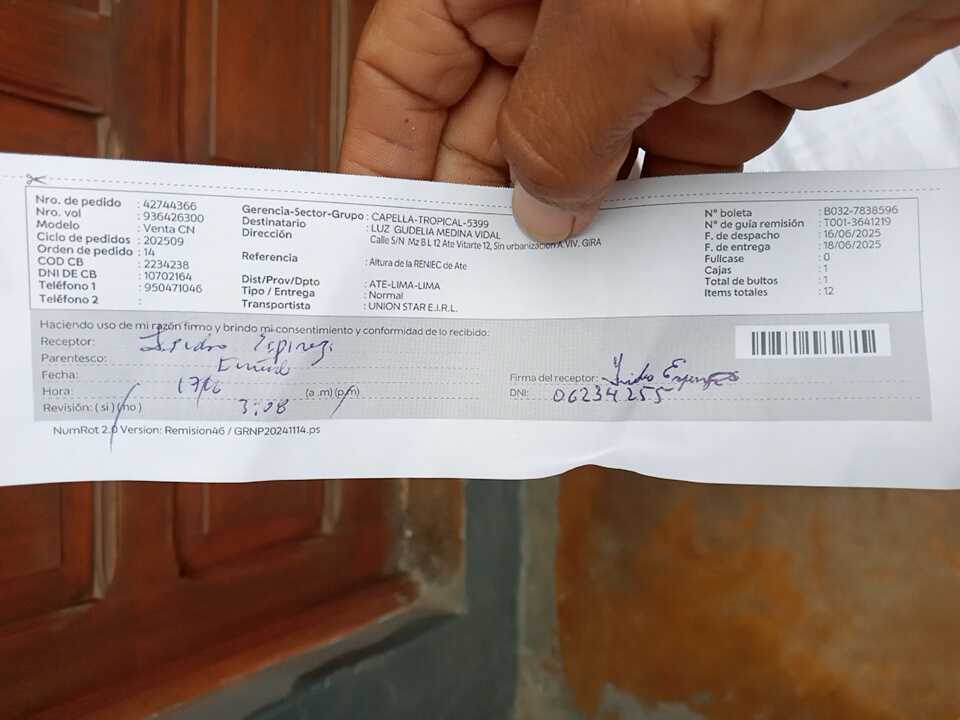 Nro. de pedido : 42744366
Nro. vol : 936426300
Modelo : Venta CN
Ciclo de pedidos : 202509
Orden de pedido : 14
COD CB : 2234238
DNI DE CB : 10702164
Teléfono 1 : 950471046
Teléfono 2 :
Gerencia-Sector-Grupo : CAPELLA-TROPICAL-5399
Destinatario : LUZ GUDELIA MEDINA VIDAL
Dirección Calle S/N Mz B L 12 Ate Vitarte 12, Sin urbanización A.VIV. GIRA
Referencia : Altura de la RENIEC de Ate
Dist/Prov/Dpto : ATE-LIMA-LIMA
Tipo / Entrega : Normal
Transportista : UNION STAR E.I.R.L.
N° boleta : B032-7838596
N° de guía remisión : T001-3641219
F. de despacho : 16/06/2025
F. de entrega : 18/06/2025
Fullcase : 0
Cajas : 1
Total de bultos : 1
Items totales : 12
Haciendo uso de mi razón firmo y brindo mi consentimiento y conformidad de lo recibido:
Receptor: Isidro Espinoza
Parentesco:
Fecha: 17/06
Hora: 3:08 (a .m) (p/m)
Revisión: ( si ) (no )
Firma del receptor:
DNI: 06234255
NumRot 2.0 Version: Remision46 / GRNP20241114.ps